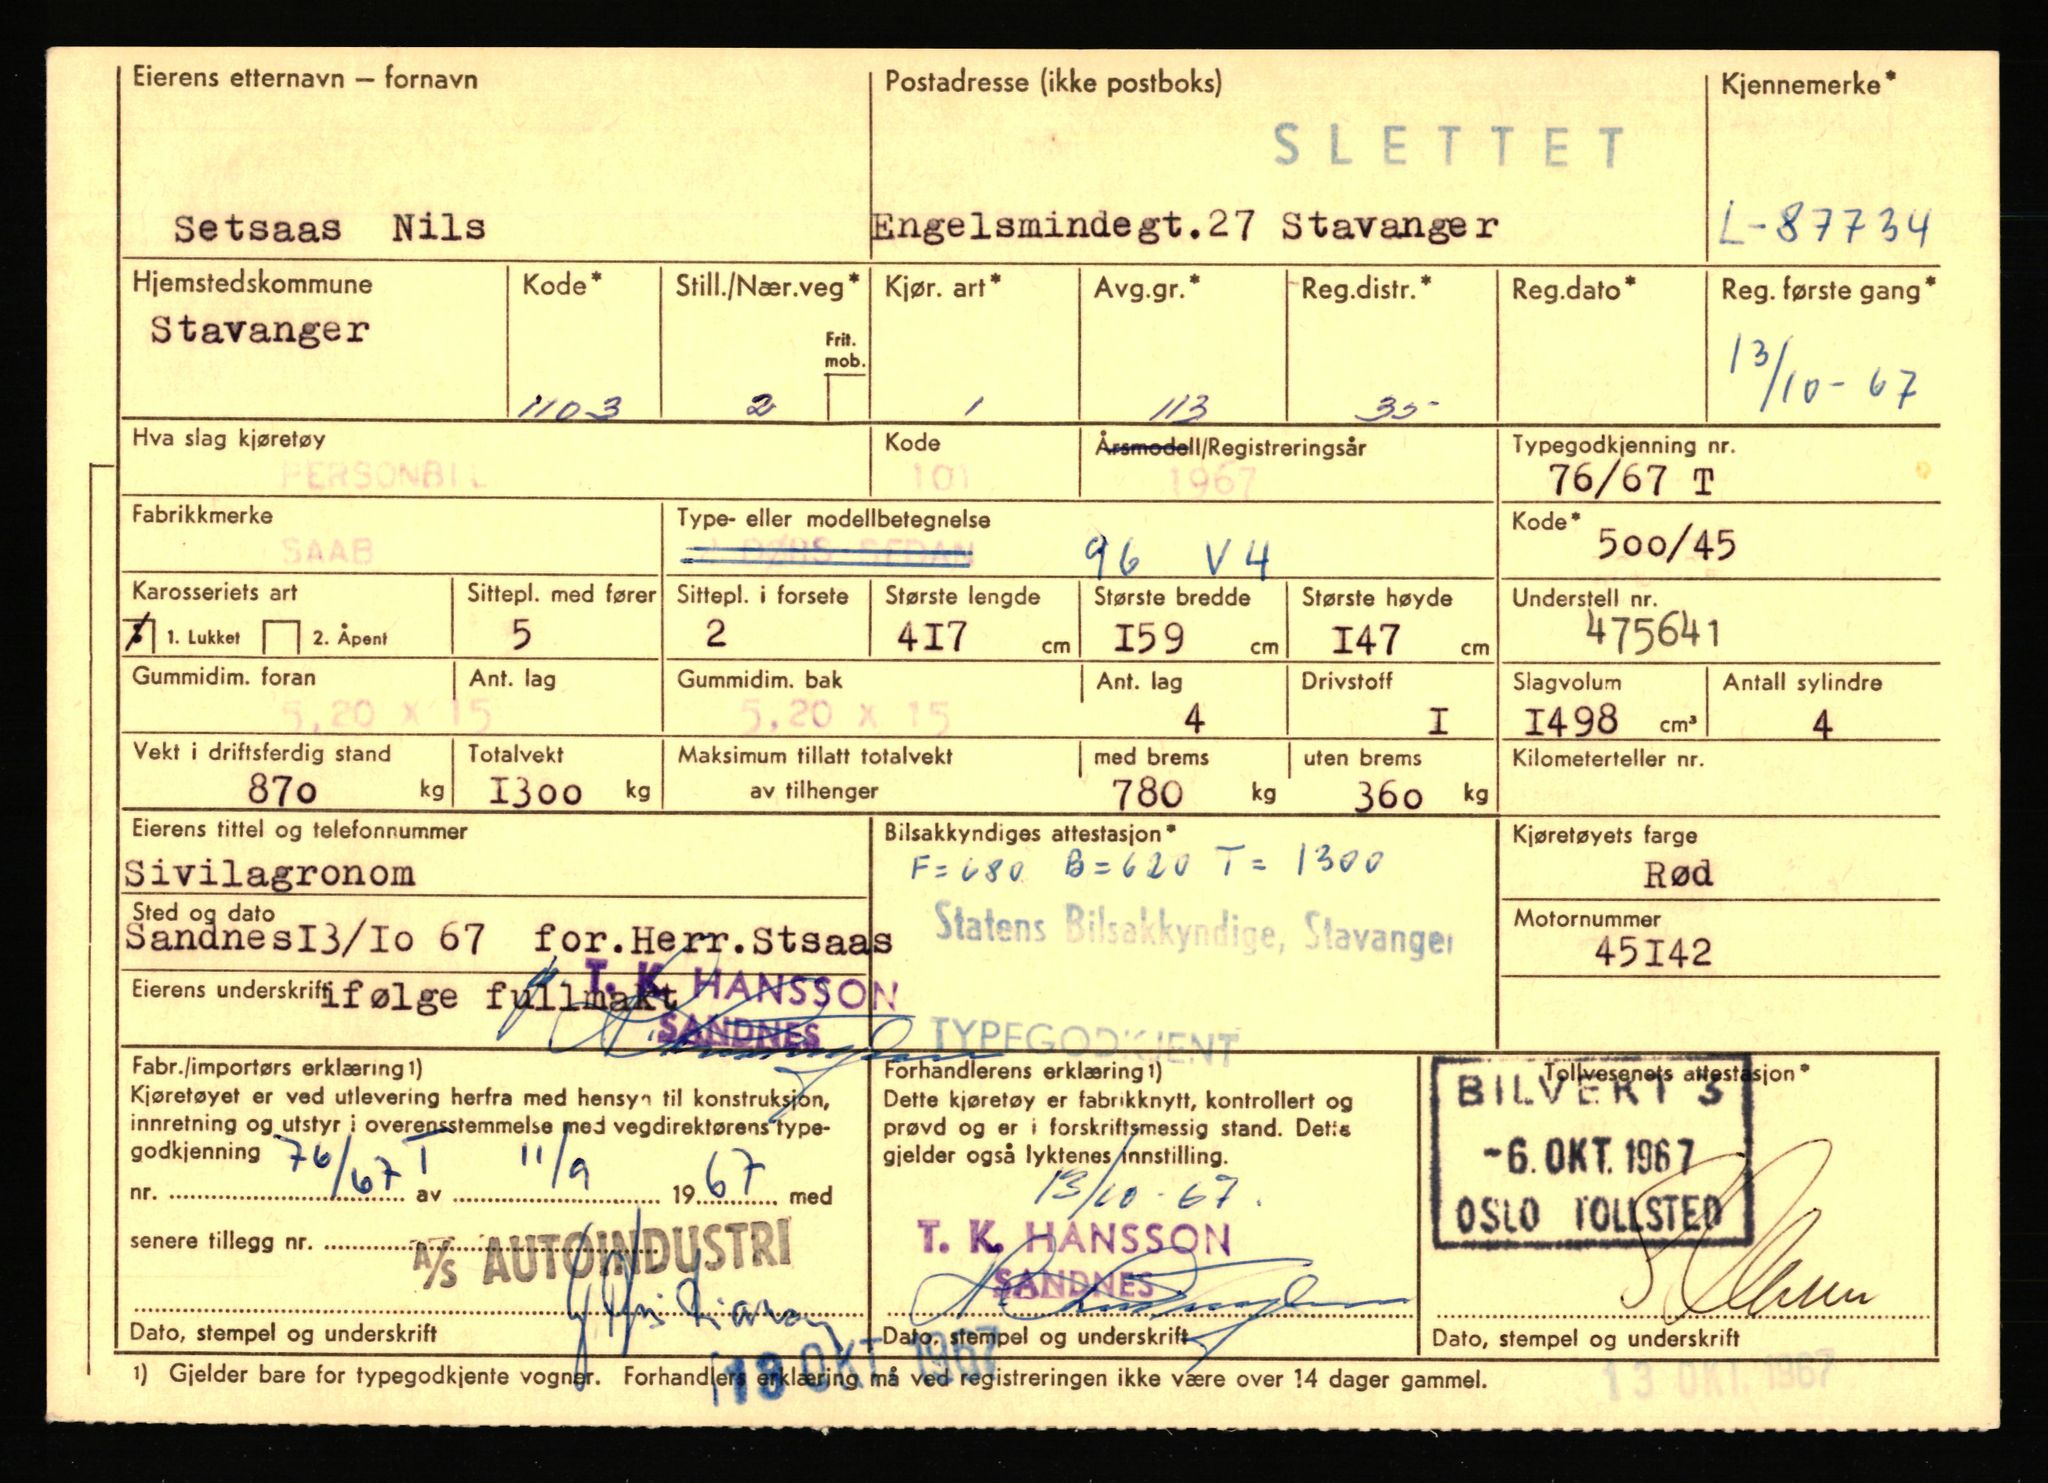 Eierens etternavn – fornavn Postadresse (ikke postboks) Kjennemerke*
SLETTET
Setsaas Nils Engelsmindegt.27 Stavanger L-87734
Hjemstedskommune Kode* Still./Nær.veg* Kjør. art* Avg.gr.* Reg.distr.* Reg.dato* Reg. første gang*
Stavanger Frit. mob. 13/10-67
1103 2 1 113 35
Hva slag kjøretøy Kode Årsmodell/Registreringsår Typegodkjenning nr.
PERSONBIL 101 1967 76/67 T
Fabrikkmerke Type- eller modellbetegnelse Kode*
SAAB 2 DØRS SEDAN 96 V4 500/45
Karosseriets art Sittepl. med fører Sittepl. i forsete Største lengde Største bredde Største høyde Understell nr.
1. Lukket 2. Åpent 5 2 417 cm 159 cm 147 cm 475641
Gummidim. foran Ant. lag Gummidim. bak Ant. lag Drivstoff Slagvolum Antall sylindre
5.20 x 15 5.20 x 15 4 I 1498 cm³ 4
Vekt i driftsferdig stand Totalvekt Maksimum tillatt totalvekt med brems uten brems Kilometerteller nr.
870 kg 1300 kg av tilhenger 780 kg 360 kg
Eierens tittel og telefonnummer Bilsakkyndiges attestasjon* Kjøretøyets farge
Sivilagronom F=680 B=620 T=1300 Rød
Sted og dato Statens Bilsakkyndige, Stavanger Motornummer
Sandnes13/10 67 for.Herr.Stsaas 45142
Eierens underskrift ifølge fullmakt T. K. HANSSON
SANDNES TYPEGODKJENT
Fabr./importørs erklæring1) Forhandlerens erklæring1) Tollvesenets attestasjon*
Kjøretøyet er ved utlevering herfra med hensyn til konstruksjon, Dette kjøretøy er fabrikknytt, kontrollert og BILVERT 3
innretning og utstyr i overensstemmelse med vegdirektørens type- prøvd og er i forskriftsmessig stand. Dette
godkjenning gjelder også lyktenes innstilling. -6. OKT. 1967
nr. 76/67 T av 11/9 1967 med 13/10-67. OSLO TOLLSTED
senere tillegg nr. A/S AUTOINDUSTRI T. K. HANSSON
SANDNES
Dato, stempel og underskrift Dato, stempel og underskrift Dato, stempel og underskrift
1) Gjelder bare for typegodkjente vogner. Forhandlers erklæring må ved registreringen ikke være over 14 dager gammel.
OKT. 1967 13 OKT. 1967